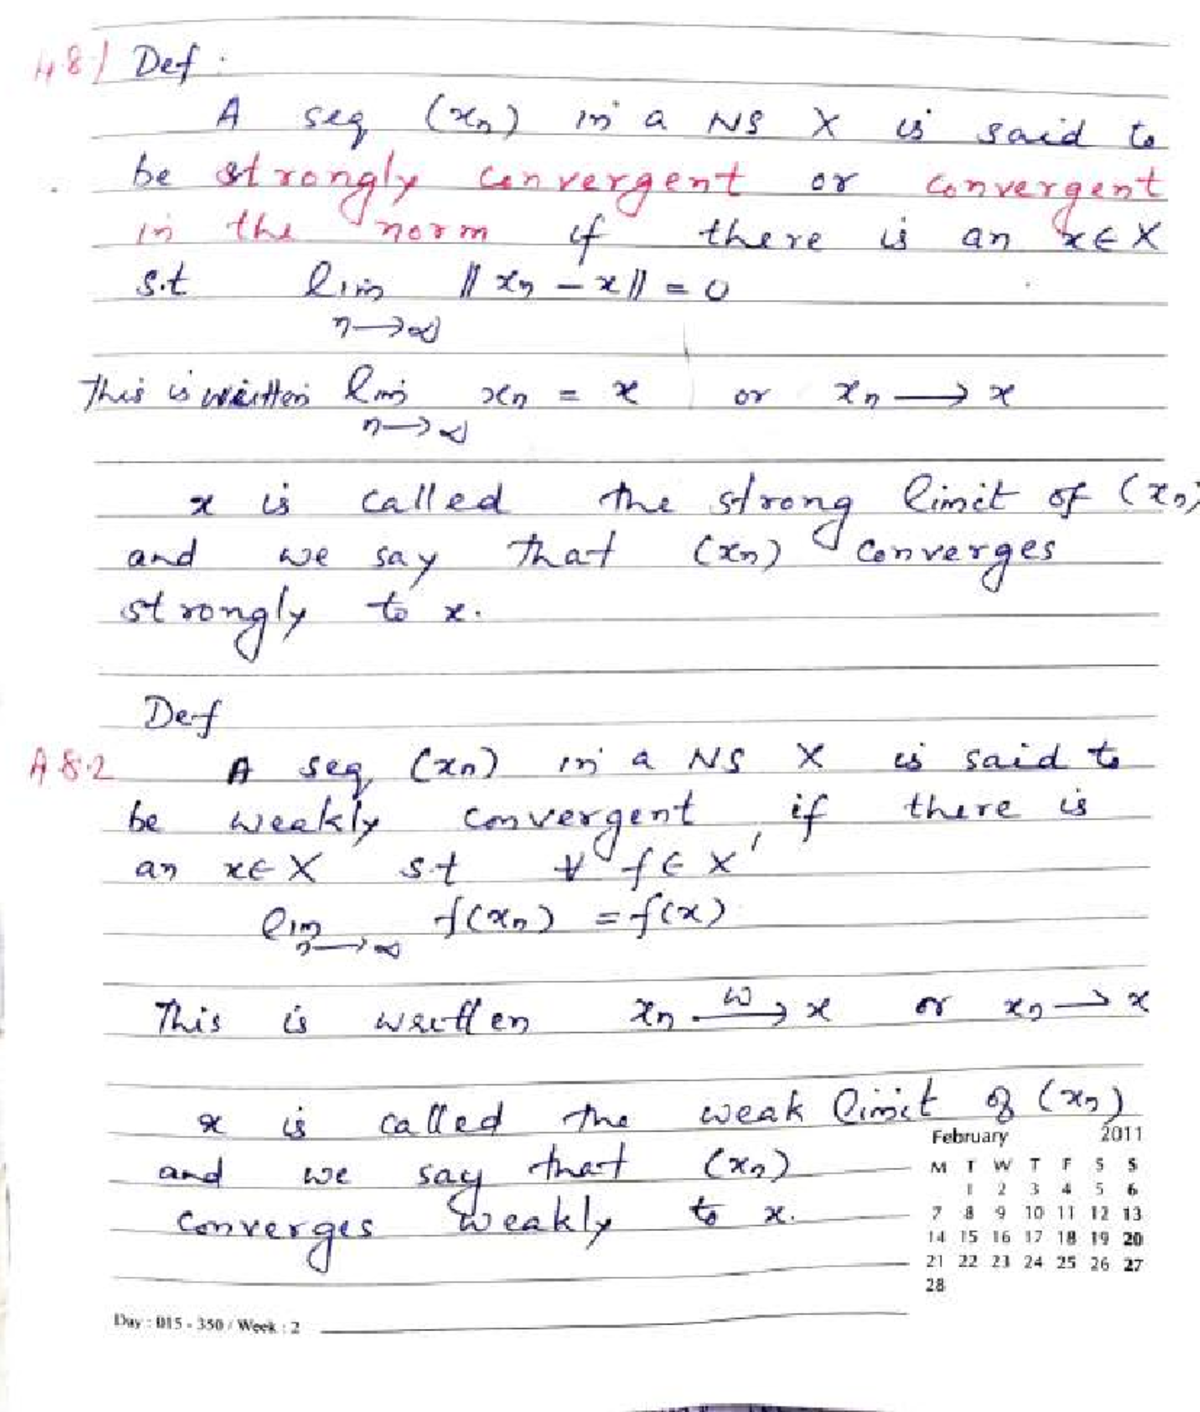 4.8.1 Def :
A seq (xₙ) in a NS X is said to
be strongly convergent or convergent
in the norm if there is an x∈X
s.t lim ‖xₙ − x‖ = 0
n→∞
This is written lim xₙ = x or xₙ → x
n→∞
x is called the strong limit of (xₙ)
and we say that (xₙ) converges
strongly to x.
Def
4.8.2 A seq (xₙ) in a NS X is said to
be weakly convergent if there is
an x∈X s.t ∀ f∈X'
lim f(xₙ) = f(x)
n→∞
This is written xₙ —w→ x or xₙ → x
x is called the weak limit of (xₙ)
and we say that (xₙ)
converges weakly to x.
February 2011
M T W T F S S
1 2 3 4 5 6
7 8 9 10 11 12 13
14 15 16 17 18 19 20
21 22 23 24 25 26 27
28
Day : 015 - 350 / Week : 2